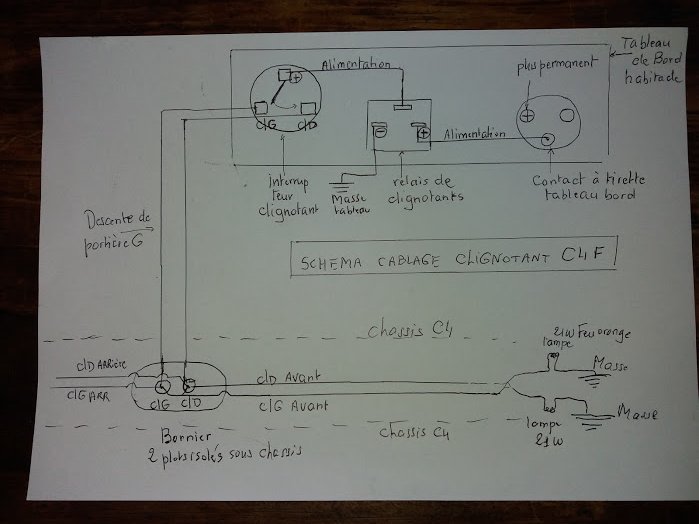 Tableau
de Bord
habitacle
Alimentation
plus permanent
+
C/G
C/D
-
+
Alimentation
+
Interrup
teur
clignotant
Masse
tableau
relais de
clignotants
Contact à tirette
tableau bord
Descente de
portière G
SCHEMA CABLAGE CLIGNOTANT C4F
chassis C4
21W Feu orange
lampe
Masse
C/D ARRière
C/G ARR
C/G
C/D
C/D Avant
C/G Avant
Masse
lampe
21W
Bornier
2 plots isolés sous chassis
chassis C4